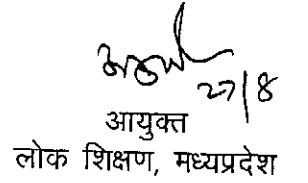 27/8
आयुक्त
लोक शिक्षण, मध्यप्रदेश